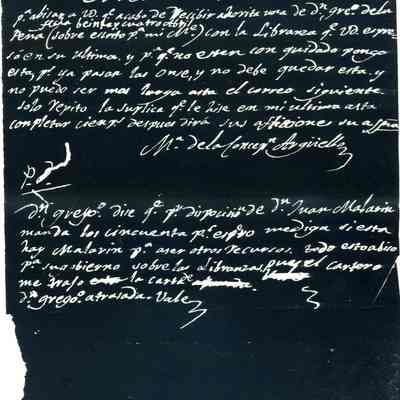 pª abisar a VD. qᵉ acabo de Recibir ahorita una de Dⁿ. greº. de la
Peña (sobre escrito pª. mi Mº.) con la Libranza qᵉ VD. espre-
sa en su ultima, y pª. qᵉ no esten con quidado pongo
esta, pˢ. ya pasan las onse, y no debe quedar esta, y
no puedo ser mas larga asta el correo siguiente
solo repito la suplica qᵉ le hise en mi ultima asta
completar cien pˢ. despues dirá sus aflicciones su afma
Mª. de la Concepⁿ. Argüello
P.D.
Dⁿ. gregoº. dise qᵉ pʳ. disposicion de Dⁿ. Juan Malarin
manda los cincuenta pˢ. espero me diga si esta
hay Malarin pª. aser otros Recursos. todo esto abiso
pª. su gobierno sobre las Libranzas, pues el cartero
me trajo la carta de
Dⁿ. gregoº. atrasada. Vale